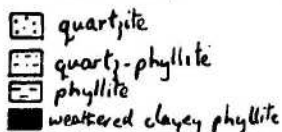 quartzite
quartz-phyllite
phyllite
weathered clayey phyllite